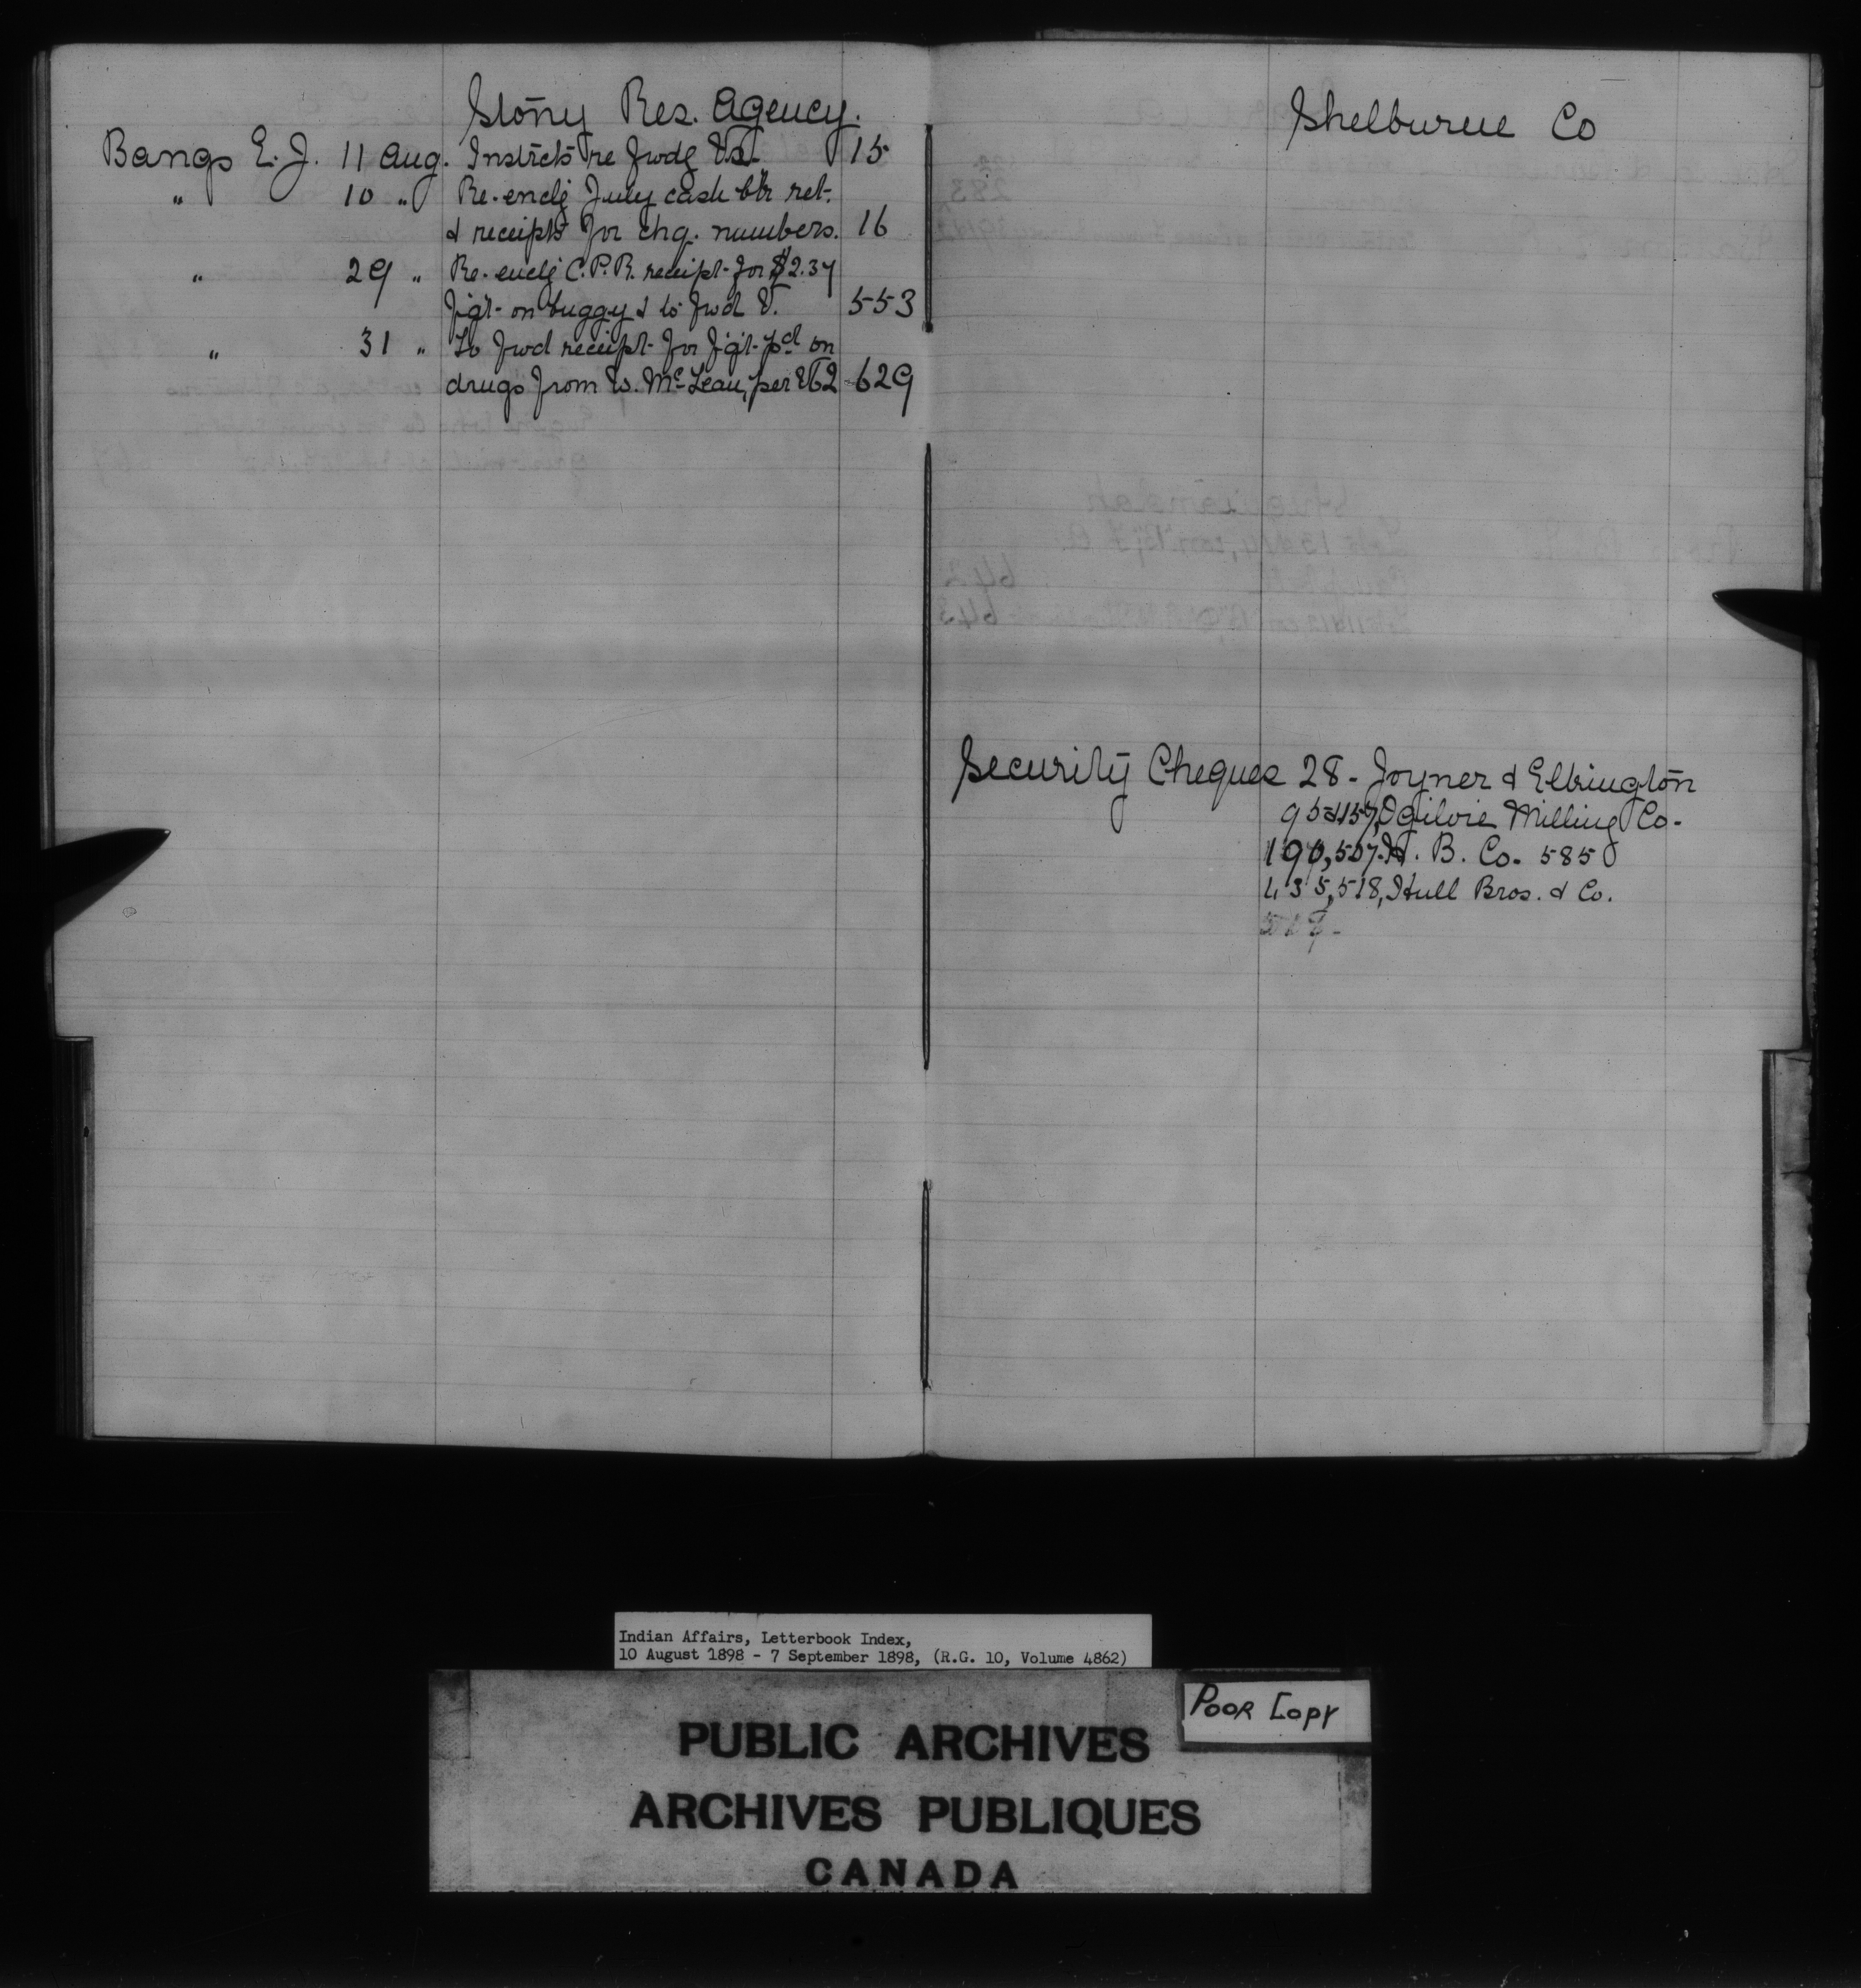 Stony Res. Agency.
Bangs E. J. 11 Aug. Instrcts re fwdg Vs. 15
" 10 " Re-enclg July cash bk ret.
& receipts for chq. numbers. 16
" 29 " Re-enclg C.P.R. receipt for $2.37
frgt- on buggy & to fwd V. 553
" 31 " To fwd receipt for frgt- pd on
drugs from W. McLean, per V62 629
Shelburne Co
Security Cheques 28 - Joyner & Elkington
95 & 157, Ogilvie Milling Co.
190, 507. H. B. Co. 585
435, 518, Hull Bros. & Co.
Indian Affairs, Letterbook Index,
10 August 1898 - 7 September 1898, (R.G. 10, Volume 4862)
POOR COPY
PUBLIC ARCHIVES
ARCHIVES PUBLIQUES
CANADA